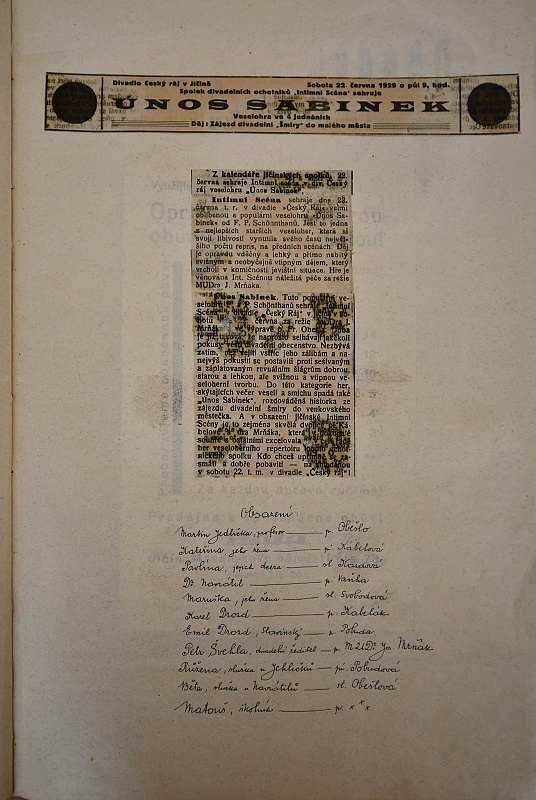 Divadlo Český ráj v Jičíně
Sobota 22. června 1929 o půl 9. hod.
Spolek divadelních ochotníků „Intimní Scéna" sehraje
ÚNOS SABINEK
Veselohra ve 4 jednáních
Děj: Zájezd divadelní „Šmíry" do malého města
Z kalendáře jičínských spolků. 22.
června sehraje Intimní scéna v div. Český
ráj veselohru „Únos Sabinek".
Intimní Scéna sehraje dne 22.
června t. r. v divadle »Český Ráj« velmi
oblíbenou a populární veselohru »Únos Sa-
binek« od F. P. Schönthenů. Jest to jedna
z nejlepších starších veseloher, která si
svojí líbivostí vynutila svého času největ-
šího počtu repris, na předních scénách. Děj
je opravdu vděčný a lehký a přímo nabitý
svižným a neobyčejně vtipným dějem, který
vrcholí v komičnosti jevištní situace. Hře je
věnována Int. Scénou náležitá péče za režie
MUDra J. Mrňáka.
Únos Sabinek. Tuto populární ve-
selohru F. P. Schönthanů sehraje Intimní
Scéna v divadle „Český Ráj" v Jičíně v so-
botu 22. června za režie MUDra J.
Mrňáka výpravě p. Fr.
je naprosto selhávají jakékoli
pokusy divadelní obecenstvo. Nezbývá
zatím, než vyjíti vstříc jeho zálibám a na-
nejvýš pokusiti se postaviti proti sešívaným
a záplatovaným revuálním šlágrům dobrou,
starou a lehkou, ale svižnou a vtipnou ve-
seloherní tvorbu. Do této kategorie her,
skýtajících večer veselí a smíchu spadá také
„Únos Sabinek", rozdováděná historka ze
zájezdu divadelní šmíry do venkovského
městečka. A v obsazení jičínské Intimní
Scény je to zejména skvělá dvojice pí. Ka-
belové a dra Mrňáka, která
s ostatními excelovala
veseloherního repertoiru
nického spolku. Kdo chceš upřímně za-
smáti a dobře pobaviti —
v sobotu 22. t. m. v divadle „Český ráj"!
Obsazení:
Martin Jedlička, profesor — p. Obešlo
Kateřina, jeho žena — pí. Kabelová
Pavlína, jejich dcera — sl. Kazdová
Dr. Navrátil — p. Vaňha
Maruška, jeho žena — sl. Svobodová
Karel Drozd — p. Kabelák
Emil Drozd, Slavinský — p. Pohuda
Petr Švehla, divadelní ředitel — p. MUDr. Jos. Mrňák
Růžena, služka u Jedličků — pí. Pohudová
Běta, služka u Navrátilů — sl. Obešlová
Matouš, školník — p. x x x